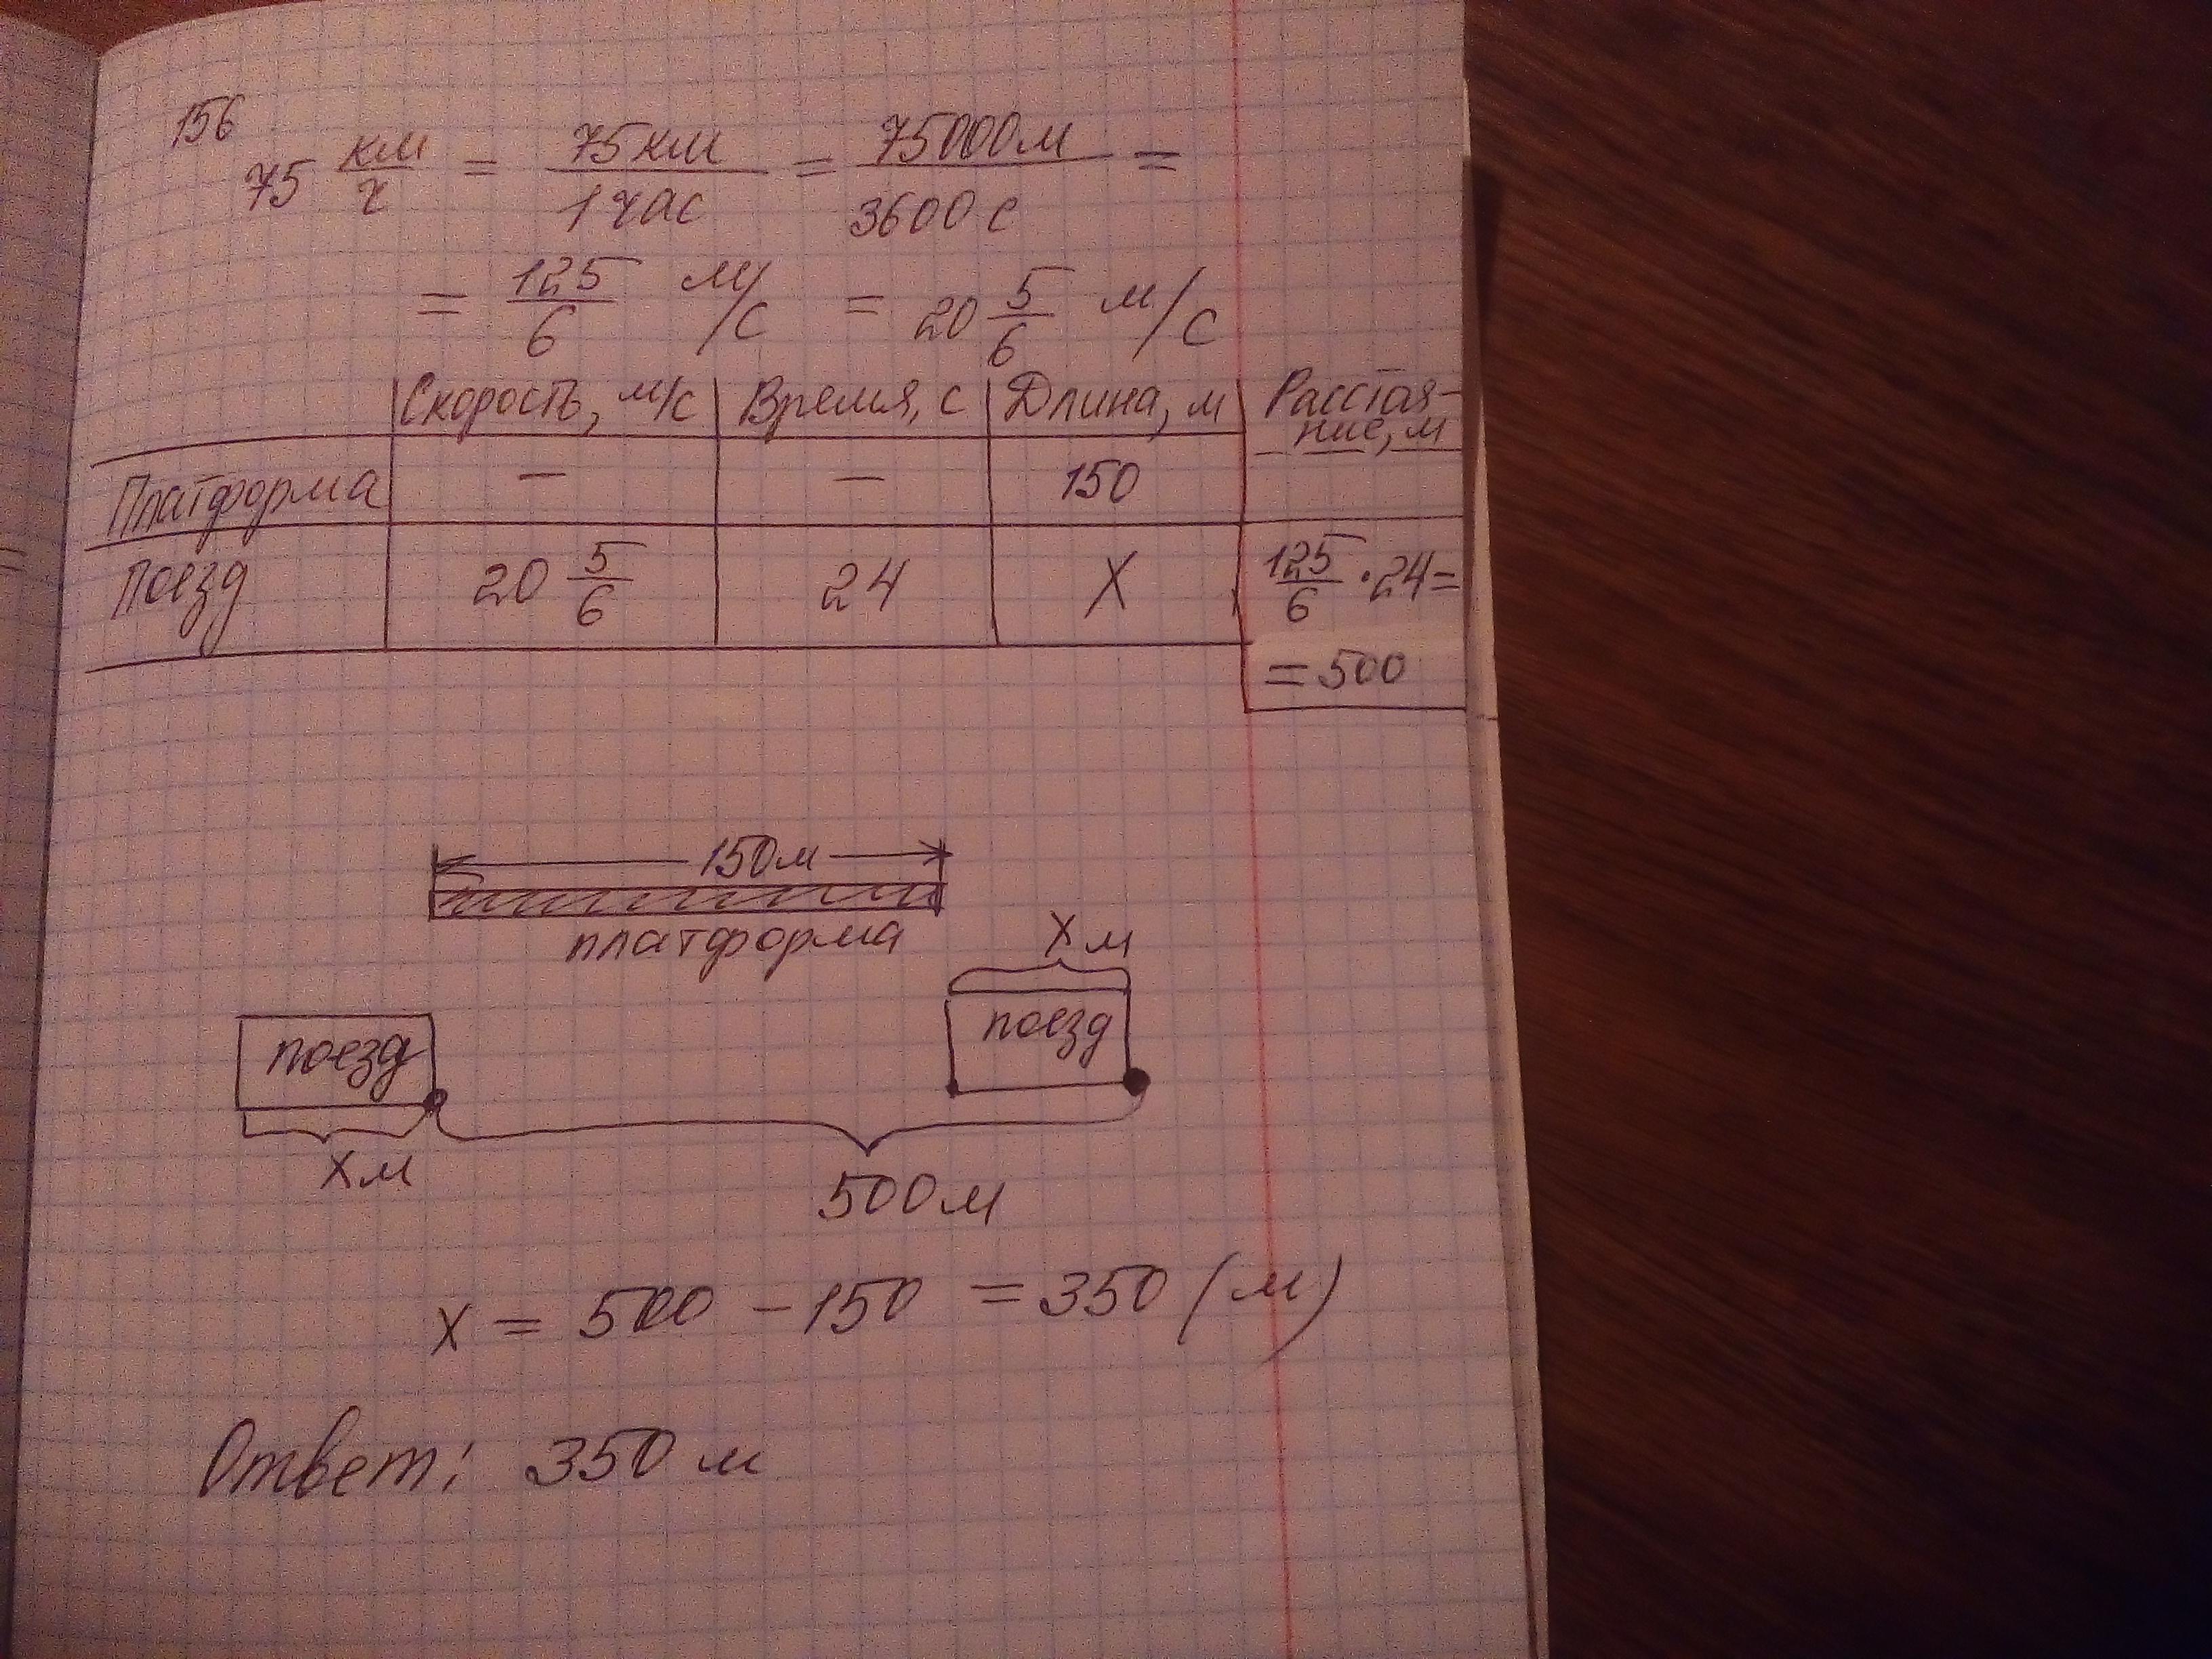 156
75 км/ч = 75км/1час = 75000м/3600с =
= 125/6 м/с = 20 5/6 м/с
Скорость, м/с Время, с Длина, м Расстоя-
ние, м
Платформа — — 150
Поезд 20 5/6 24 X 125/6 · 24 =
= 500
150м
платформа
X м
поезд
поезд
X м
500м
x = 500 - 150 = 350 (м)
Ответ: 350 м